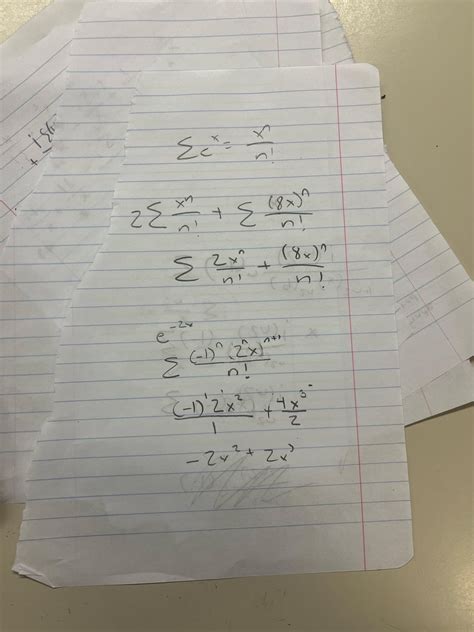 Σ e^x = x^n/n!
2Σ x^n/n! + Σ (8x)^n/n!
Σ 2x^n/n! + (8x)^n/n!
e^-2x
Σ (-1)^n (2^n x)^n+1/n!
(-1)^1 2^1 x^2/1 + 4x^3/2
-2x^2 + 2x^3